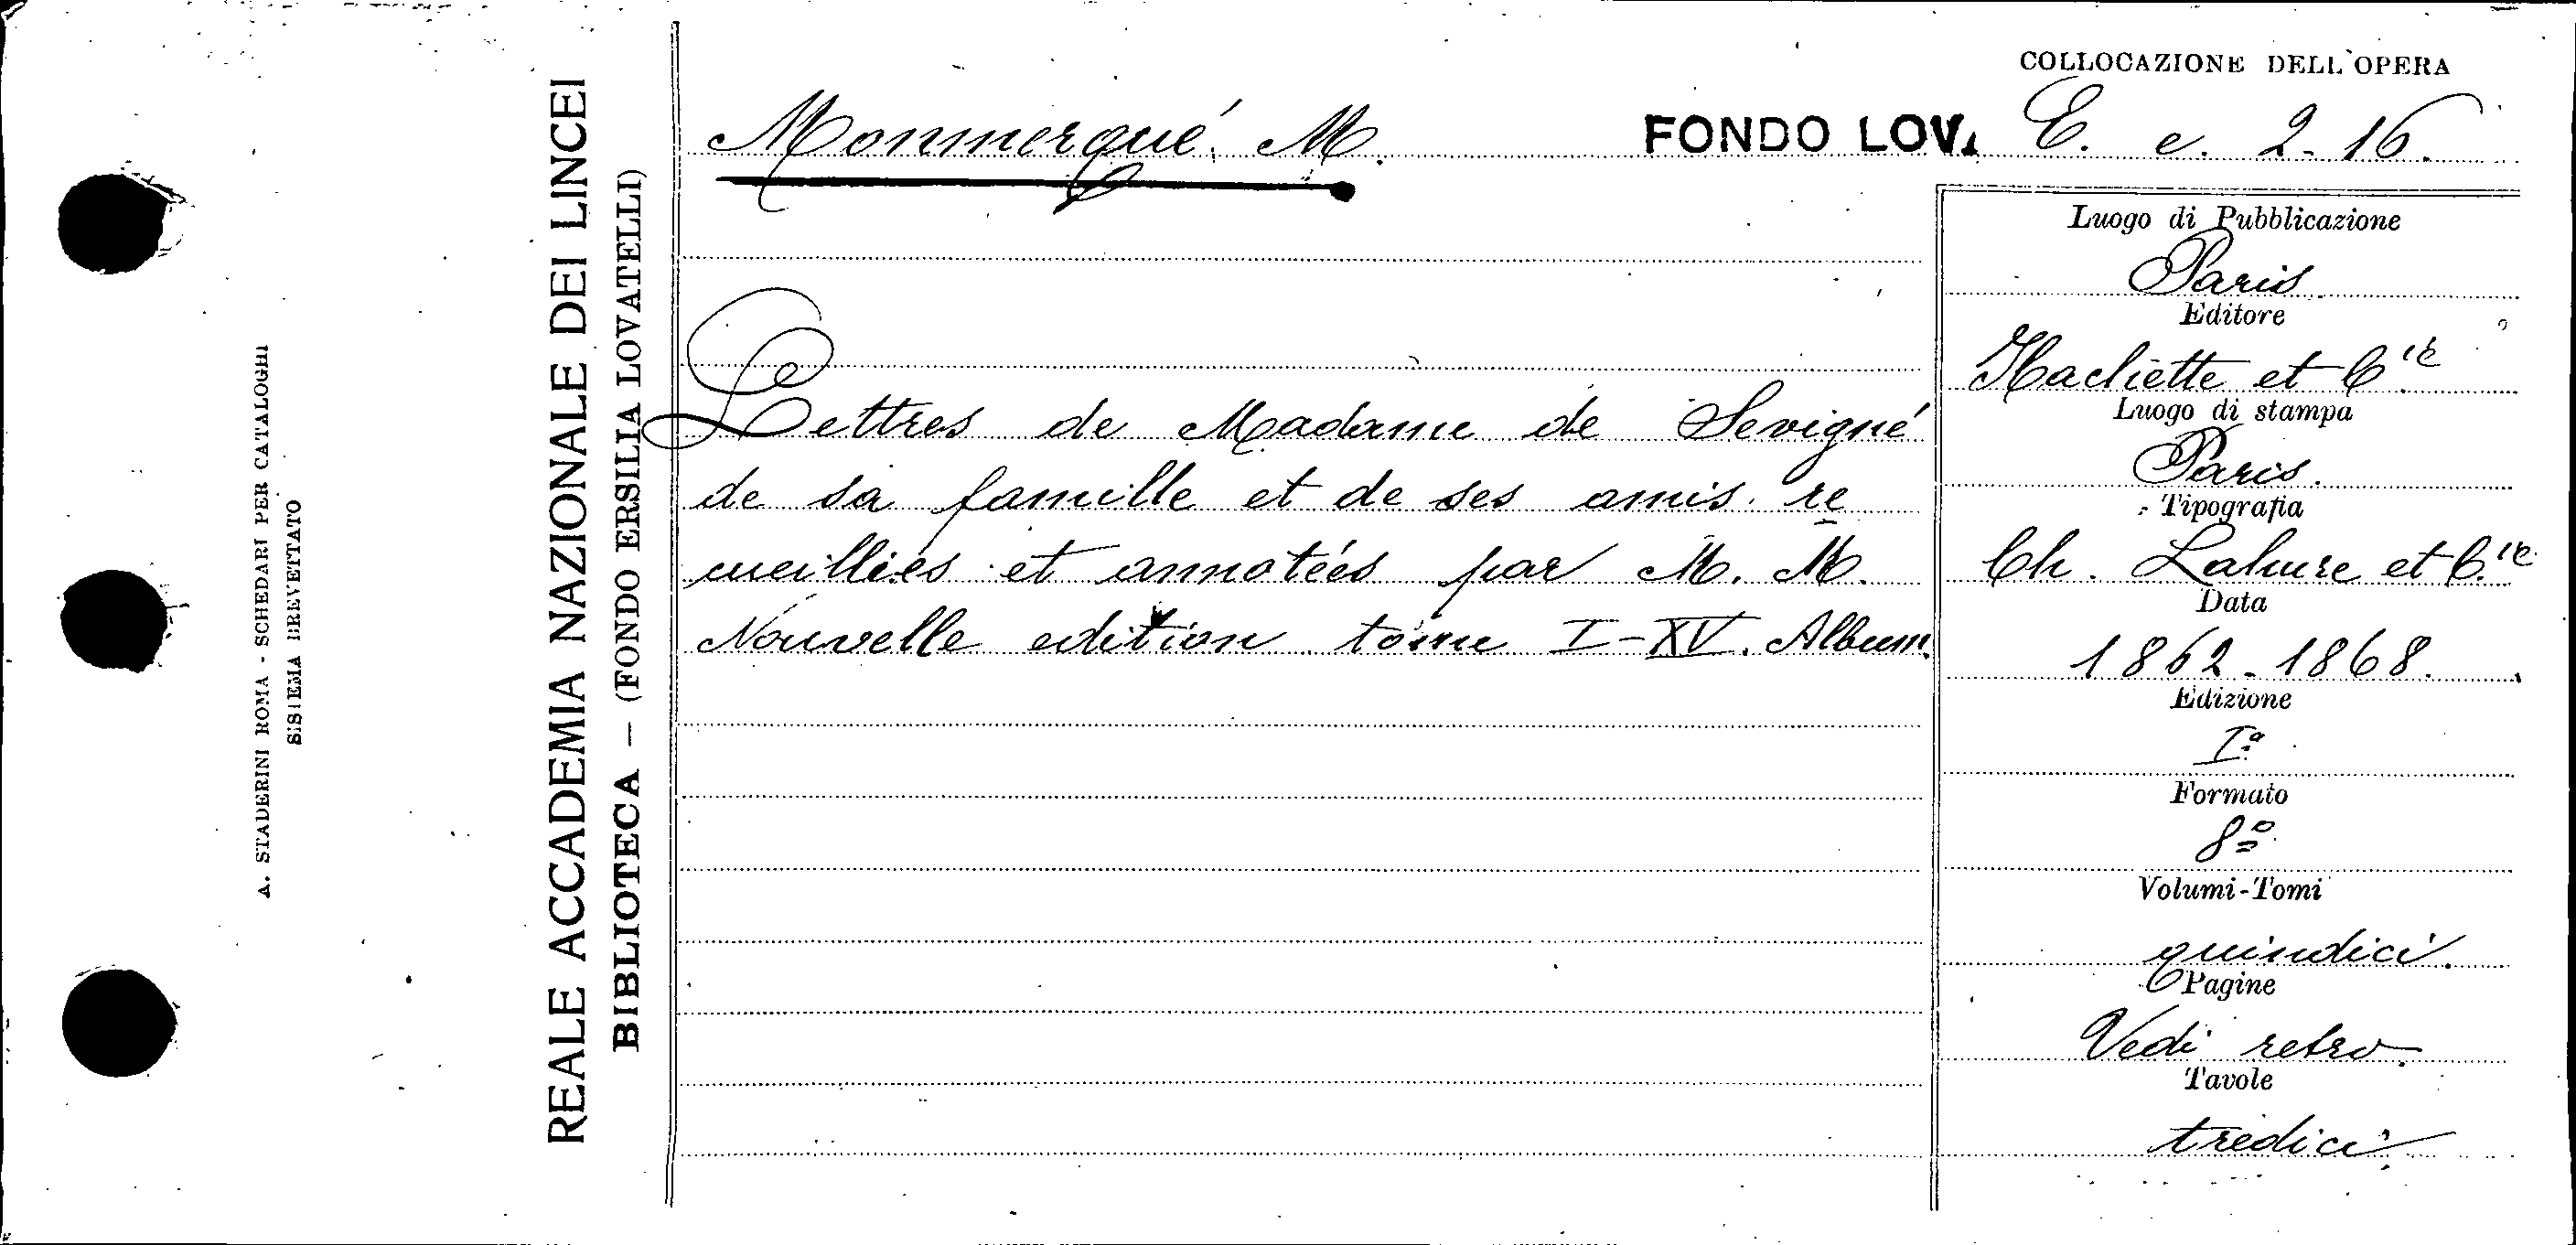 A. STADERINI ROMA - SCHEDARI PER CATALOGHI
SISTEMA BREVETTATO
REALE ACCADEMIA NAZIONALE DEI LINCEI
BIBLIOTECA — (FONDO ERSILIA LOVATELLI)
COLLOCAZIONE DELL'OPERA
Monmerqué M.
FONDO LOV. E. e. 2-16.
Lettres de Madame de Sevigné
de sa famille et de ses amis re
cueilliés et annotéés par M. M.
Nouvelle edition tome I-XV. Album.
Luogo di Pubblicazione
Paris
Editore
Hachette et Cie
Luogo di stampa
Paris.
Tipografia
Ch. Lahure et C.ie
Data
1862-1868.
Edizione
Iª
Formato
8º
Volumi-Tomi
quindici.
Pagine
Vedi retro.
Tavole
tredici